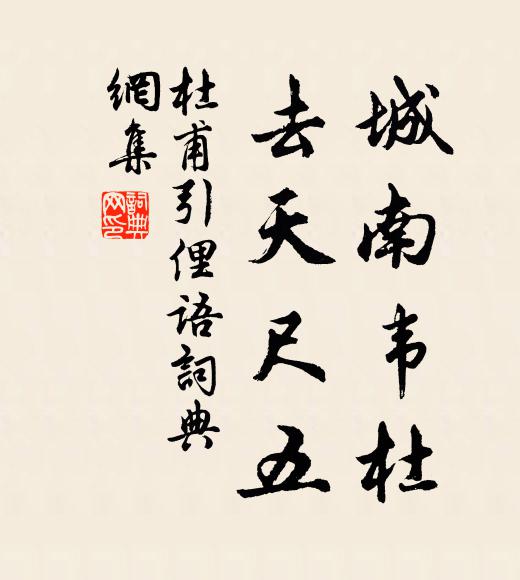 城南韦杜
去天尺五
杜甫引俚语詞典
網集
詞典
网印